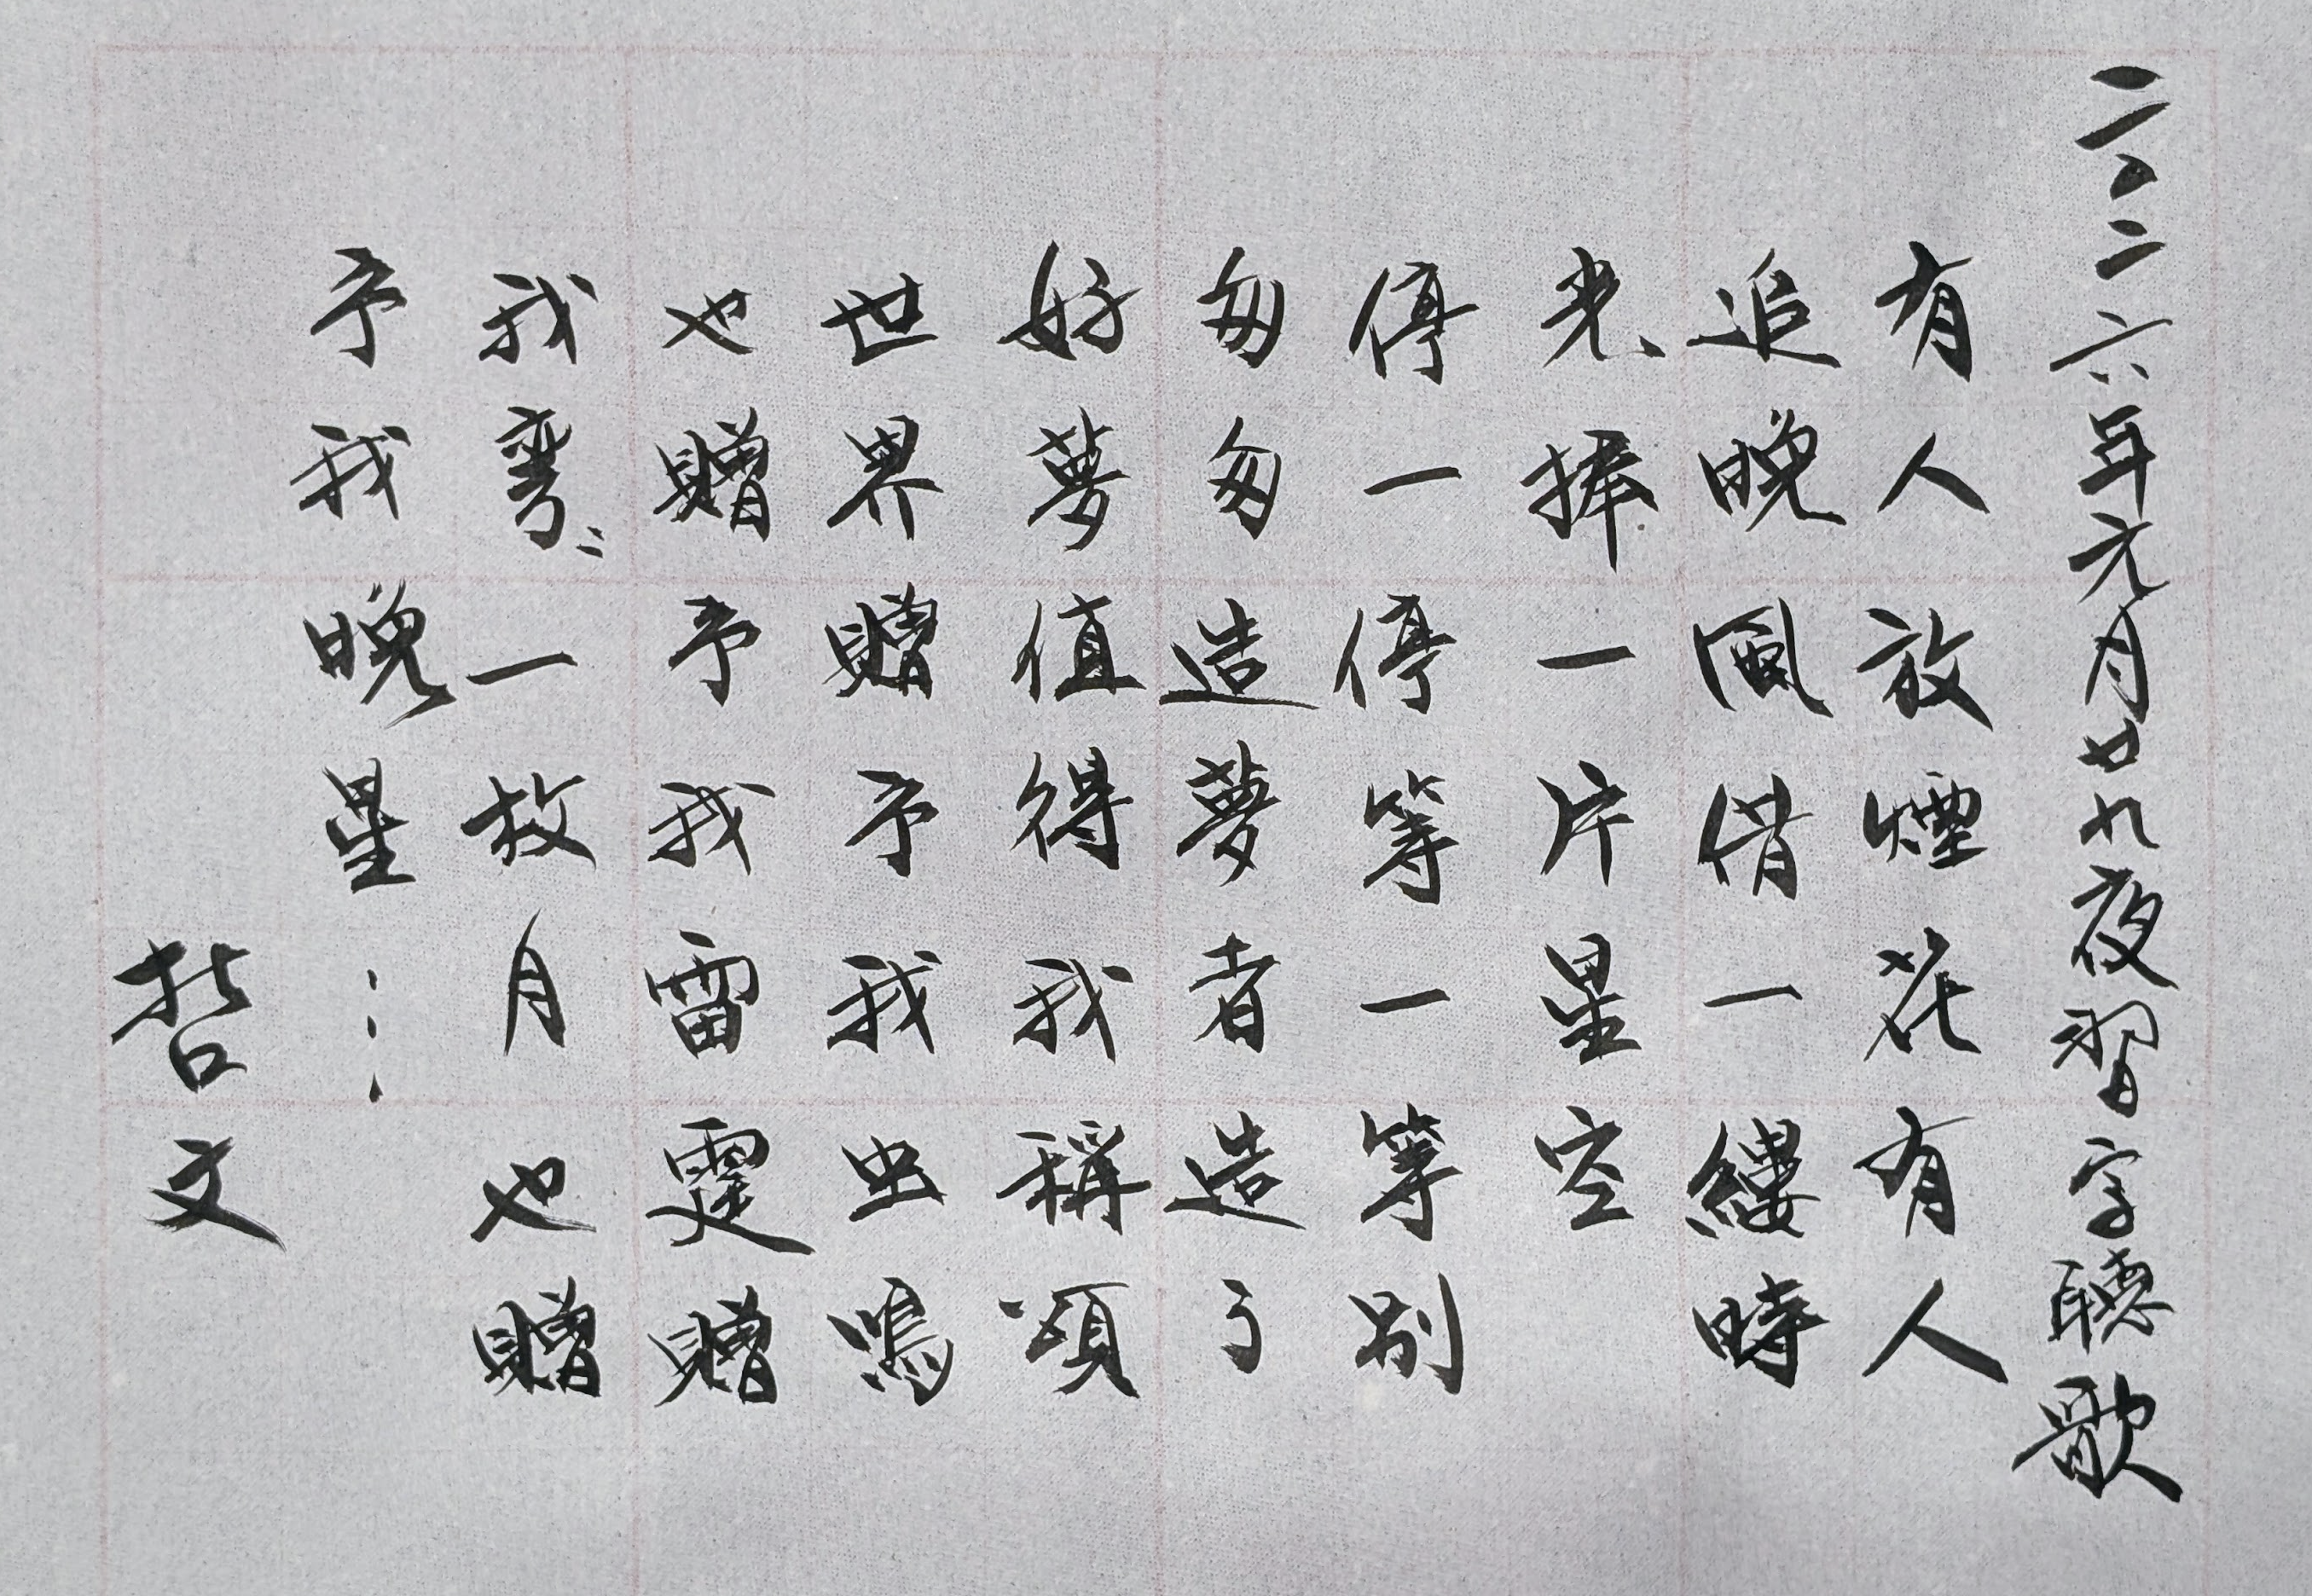 二〇二六年元月廿九夜習字聽歌
有人放煙花有人
追晚風借一縷時
光捧一片星空
停一停等一等別
匆匆造夢者造了
好夢值得我稱頌
世界贈予我虫鳴
也贈予我雷霆贈
我彎彎一枚月也贈
予我晚星…
哲文